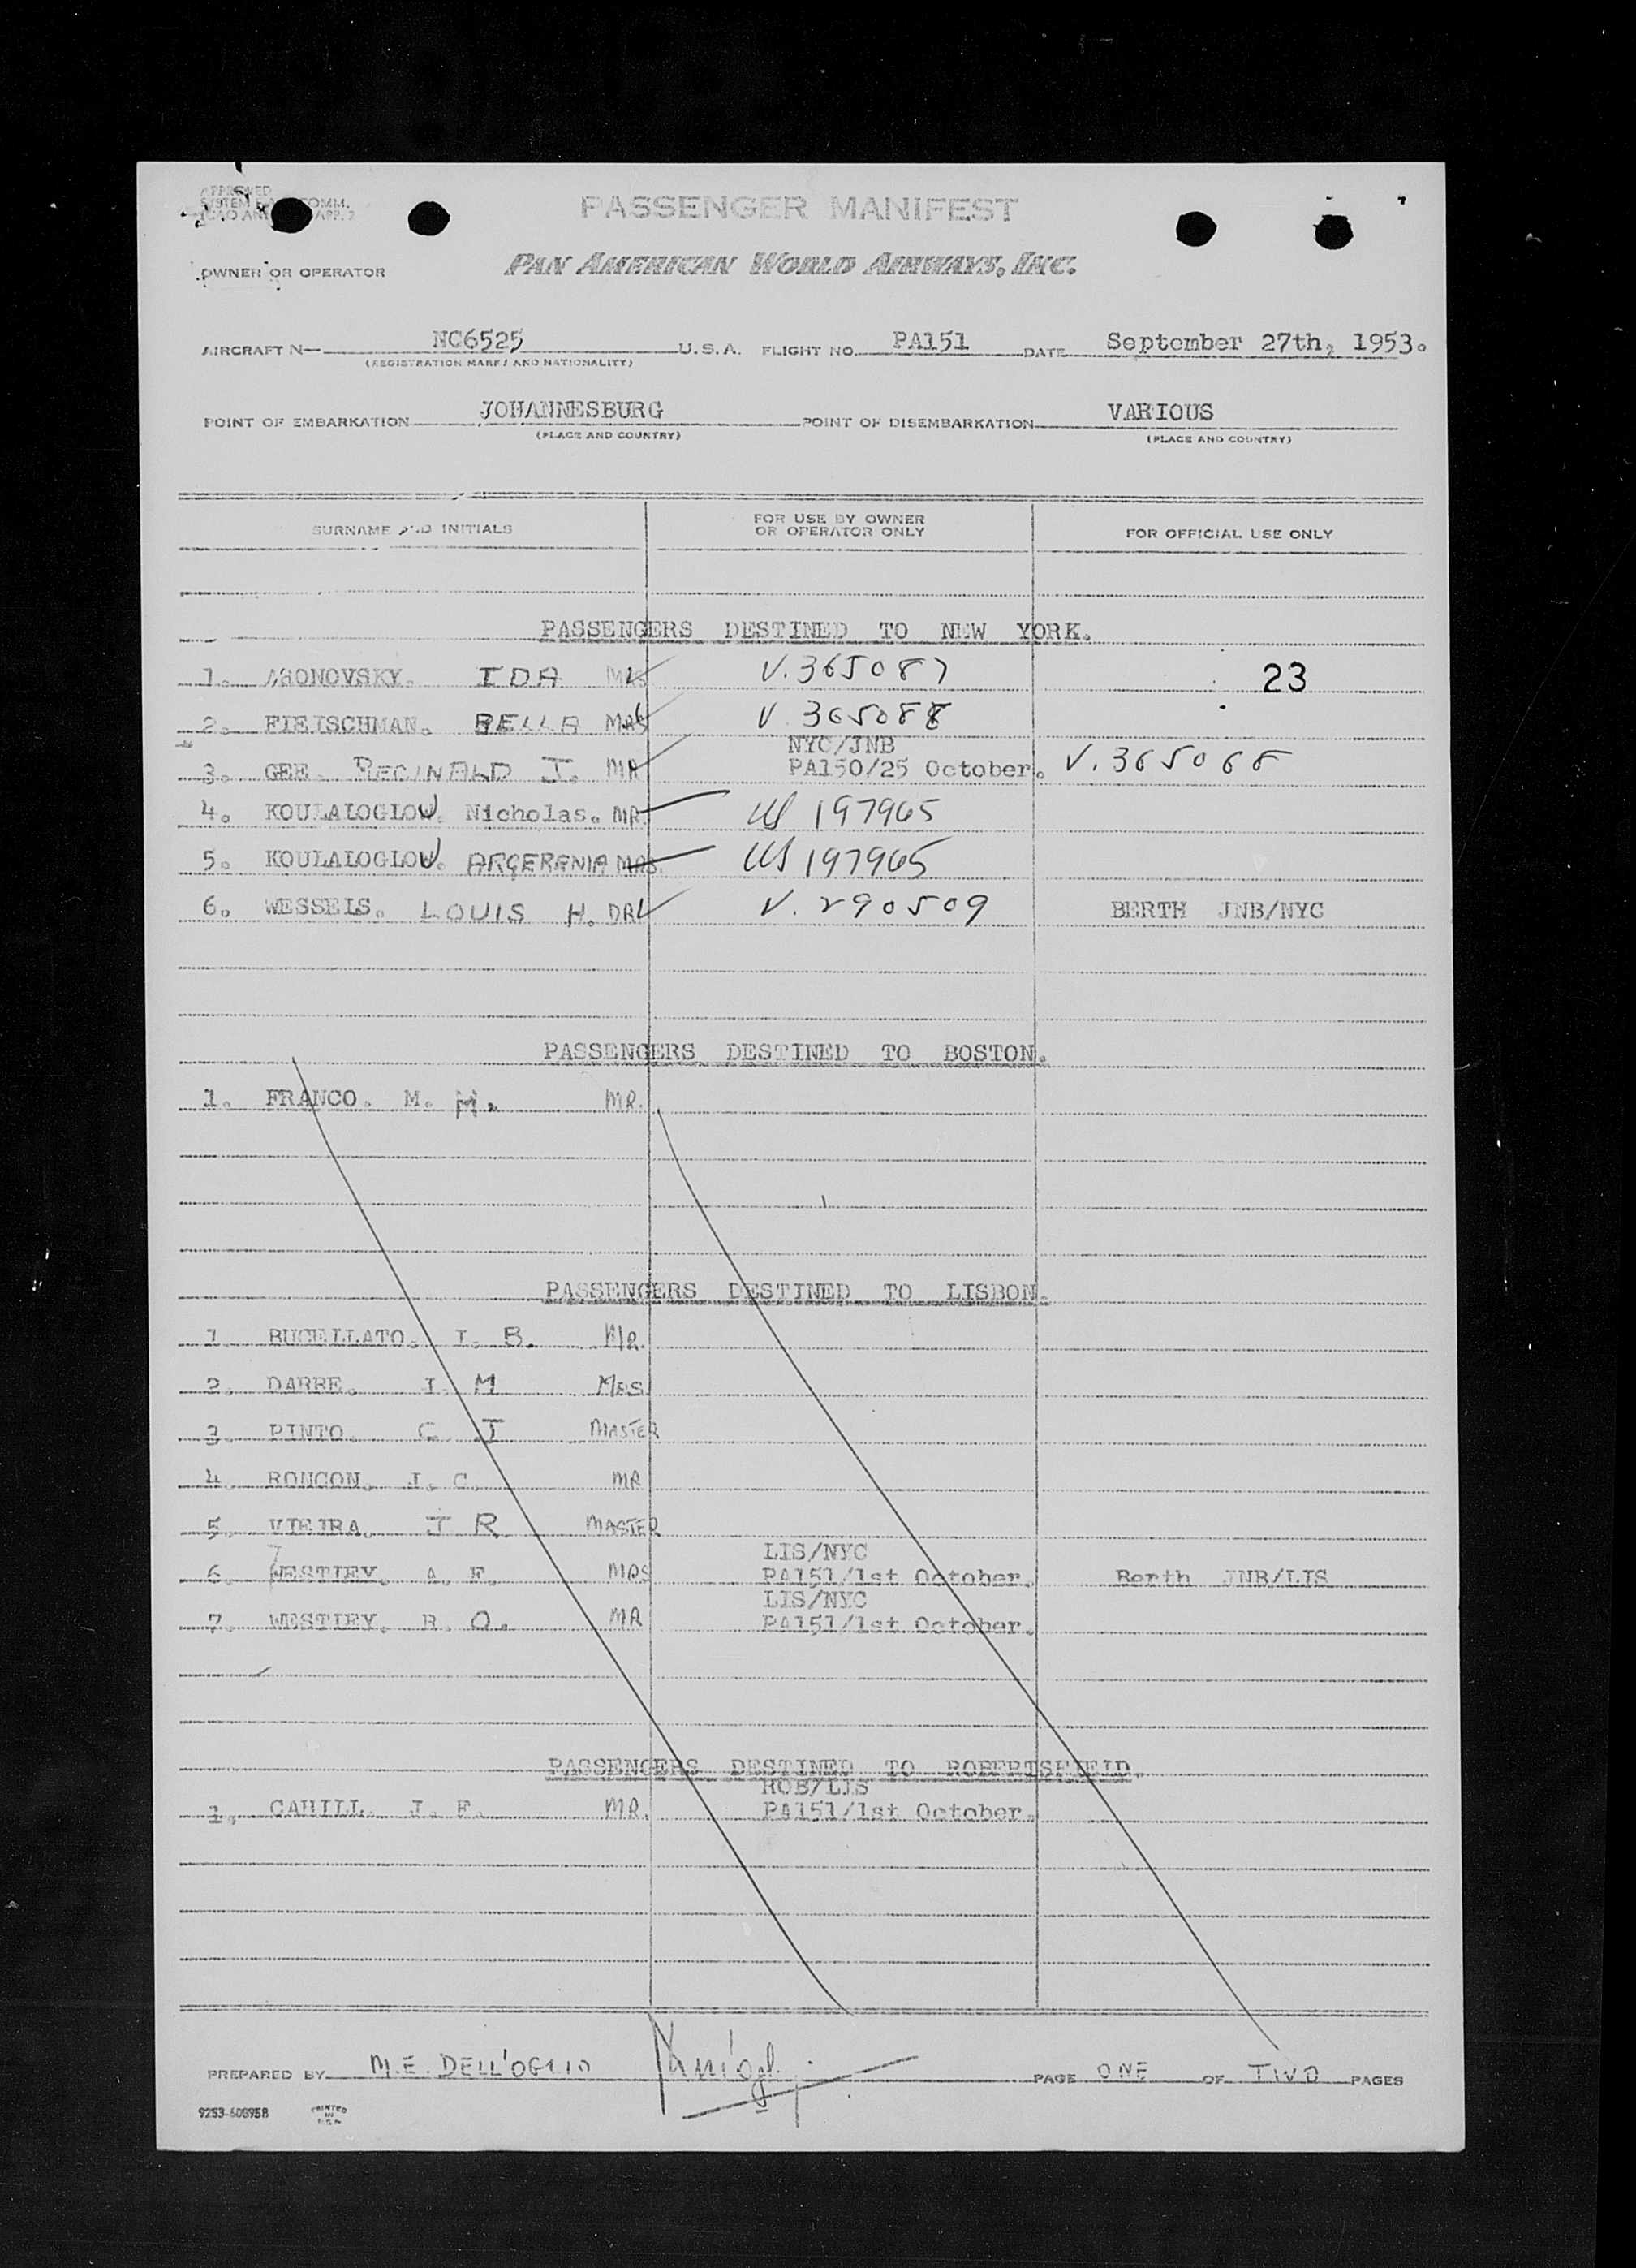 APPROVED
SYSTEM COMM.
ICAO APP. 2
PASSENGER MANIFEST
OWNER OR OPERATOR PAN AMERICAN WORLD AIRWAYS, INC.
AIRCRAFT N— NC6525 U.S.A. FLIGHT NO. PA151 DATE September 27th, 1953.
(REGISTRATION MARKS AND NATIONALITY)
POINT OF EMBARKATION JOHANNESBURG POINT OF DISEMBARKATION VARIOUS
(PLACE AND COUNTRY) (PLACE AND COUNTRY)
SURNAME AND INITIALS FOR USE BY OWNER OR OPERATOR ONLY FOR OFFICIAL USE ONLY
PASSENGERS DESTINED TO NEW YORK.
1. ARONOVSKY. IDA MRS V.365087 23
2. FLEISCHMAN. BELLA MRS V.365088
NYC/JNB
3. GEE. REGINALD J. MR PA150/25 October. V.365068
4. KOULALOGLOU. Nicholas. MR. US 197965
5. KOULALOGLOU. MRS. US 197965
6. WESSELS. LOUIS H. DR V. 290509 BERTH JNB/NYC
PASSENGERS DESTINED TO BOSTON.
1. FRANCO. M. M. MR.
PASSENGERS DESTINED TO LISBON.
1. BUCELLATO. I. B. MR.
2. DARRE. J. M MRS
3. PINTO. C. J MASTER
4. RONCON. J. C. MR
5. VIEIRA. J R. MASTER
LIS/NYC
6. WESTLEY. A. F. MRS PA151/1st October. Berth JNB/LIS
LIS/NYC
7. WESTLEY. R. O. MR PA151/1st October.
PASSENGERS DESTINED TO ROBERTSFIELD.
ROB/LIS
1. CAHILL. J. F. MR. PA151/1st October.
PREPARED BY M.E. DELL'OGLIO PAGE ONE OF TWO PAGES
9253-608958 PRINTED IN U.S.A.